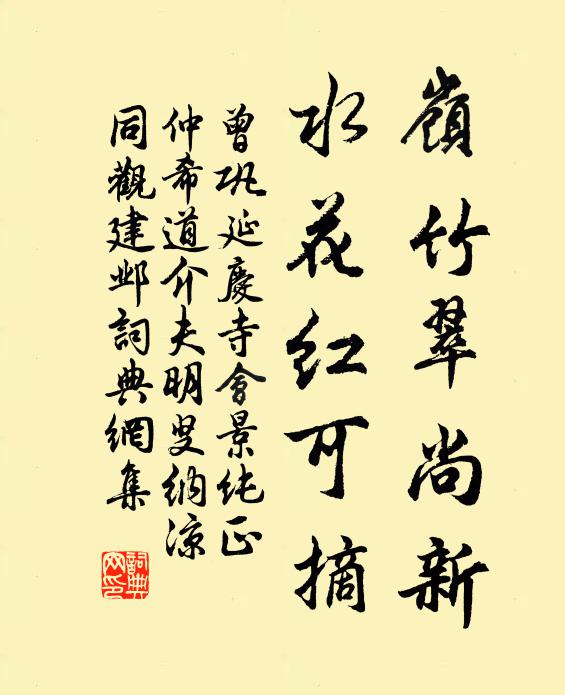 嶺竹翠尚新
水花紅可摘
曾巩延慶寺會景純正
仲希道介夫明叟納凉
同觀建邺詞典網集
詞典
网印